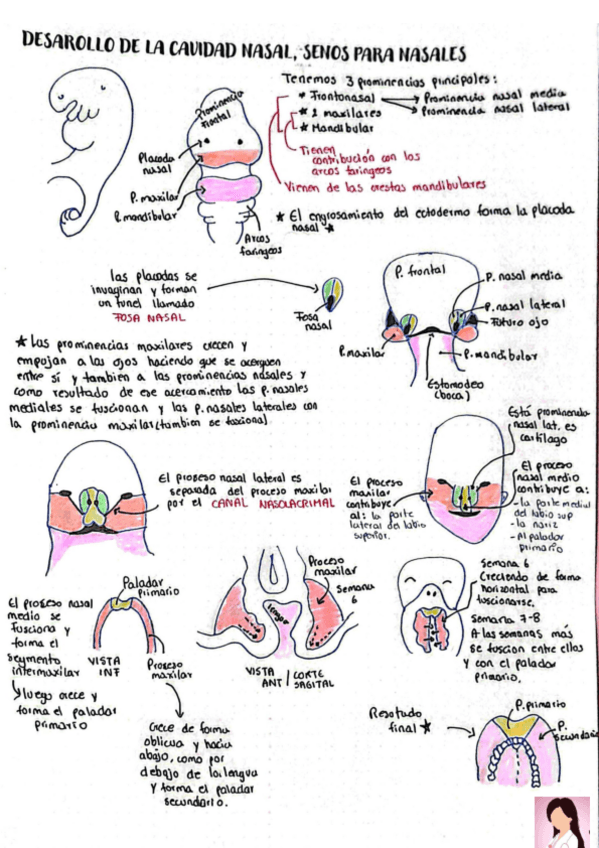 DESAROLLO DE LA CAVIDAD NASAL, SENOS PARA NASALES
Tenemos 3 prominencias principales:
* Frontonasal → Prominencia nasal media
→ Prominencia nasal lateral
* 2 maxilares
* Mandibular
Tienen
contribución con los
arcos faringeos
Vienen de las crestas mandibulares
Prominencia
Frontal
Placoda
nasal
P. maxilar
P. mandibular
Arcos
faringeos
★ El engrosamiento del ectodermo forma la placoda
nasal ★
las placodas se
invaginan y forman
un tunel llamado
FOSA NASAL
Fosa
nasal
P. frontal
P. nasal media
P. nasal lateral
Futuro ojo
P. maxilar
P. mandibular
Estomodeo
(boca)
★ Las prominencias maxilares crecen y
empujan a los ojos haciendo que se acerquen
entre sí y tambien a las prominencias nasales y
como resultado de ese acercamiento las p. nasales
mediales se fuscionan y las p. nasales laterales con
la prominencia maxilar (tambien se fusciona)
El proseso nasal lateral es
separada del proceso maxilar
por el CANAL NASOLACRIMAL
Está prominencia
nasal lat. es
cartílago
El proceso
maxilar
contribuye
al: la parte
lateral de labio
superior.
El proceso
nasal medio
contribuye a:
-la parte medial
del labio sup
-la nariz
-Al paladar
primario
El proseso nasal
medio se
fusciona y
forma el
segmento
intermaxilar
luego crece y
forma el paladar
primario
Paladar
primario
VISTA
INF
Proseso
maxilar
Crece de forma
oblicua y hacia
abajo, como por
debajo de la lengua
y forma el paladar
secundario.
Proceso
maxilar
Semana
6
lengua
VISTA
ANT / CORTE
SAGITAL
Semana 6
Creciendo de forma
horizontal para
fuscionarse.
Semana 7-8
A las semanas más
se fuscion entre ellas
y con el paladar
primario.
Resultado
final ★
P. primario
P.
secundario